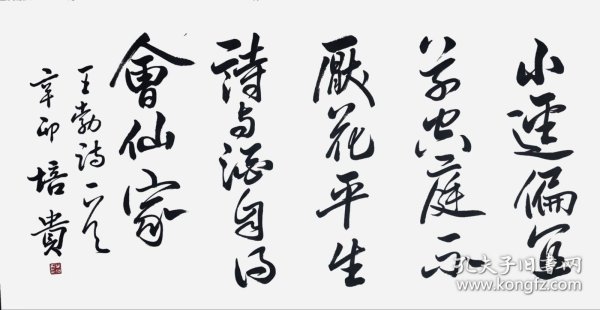 小逕偏宜
草空庭不
厭花平生
詩与酒自得
會仙家
王勃诗一首
辛卯 培貴
孔夫子旧书网
www.kongfz.com